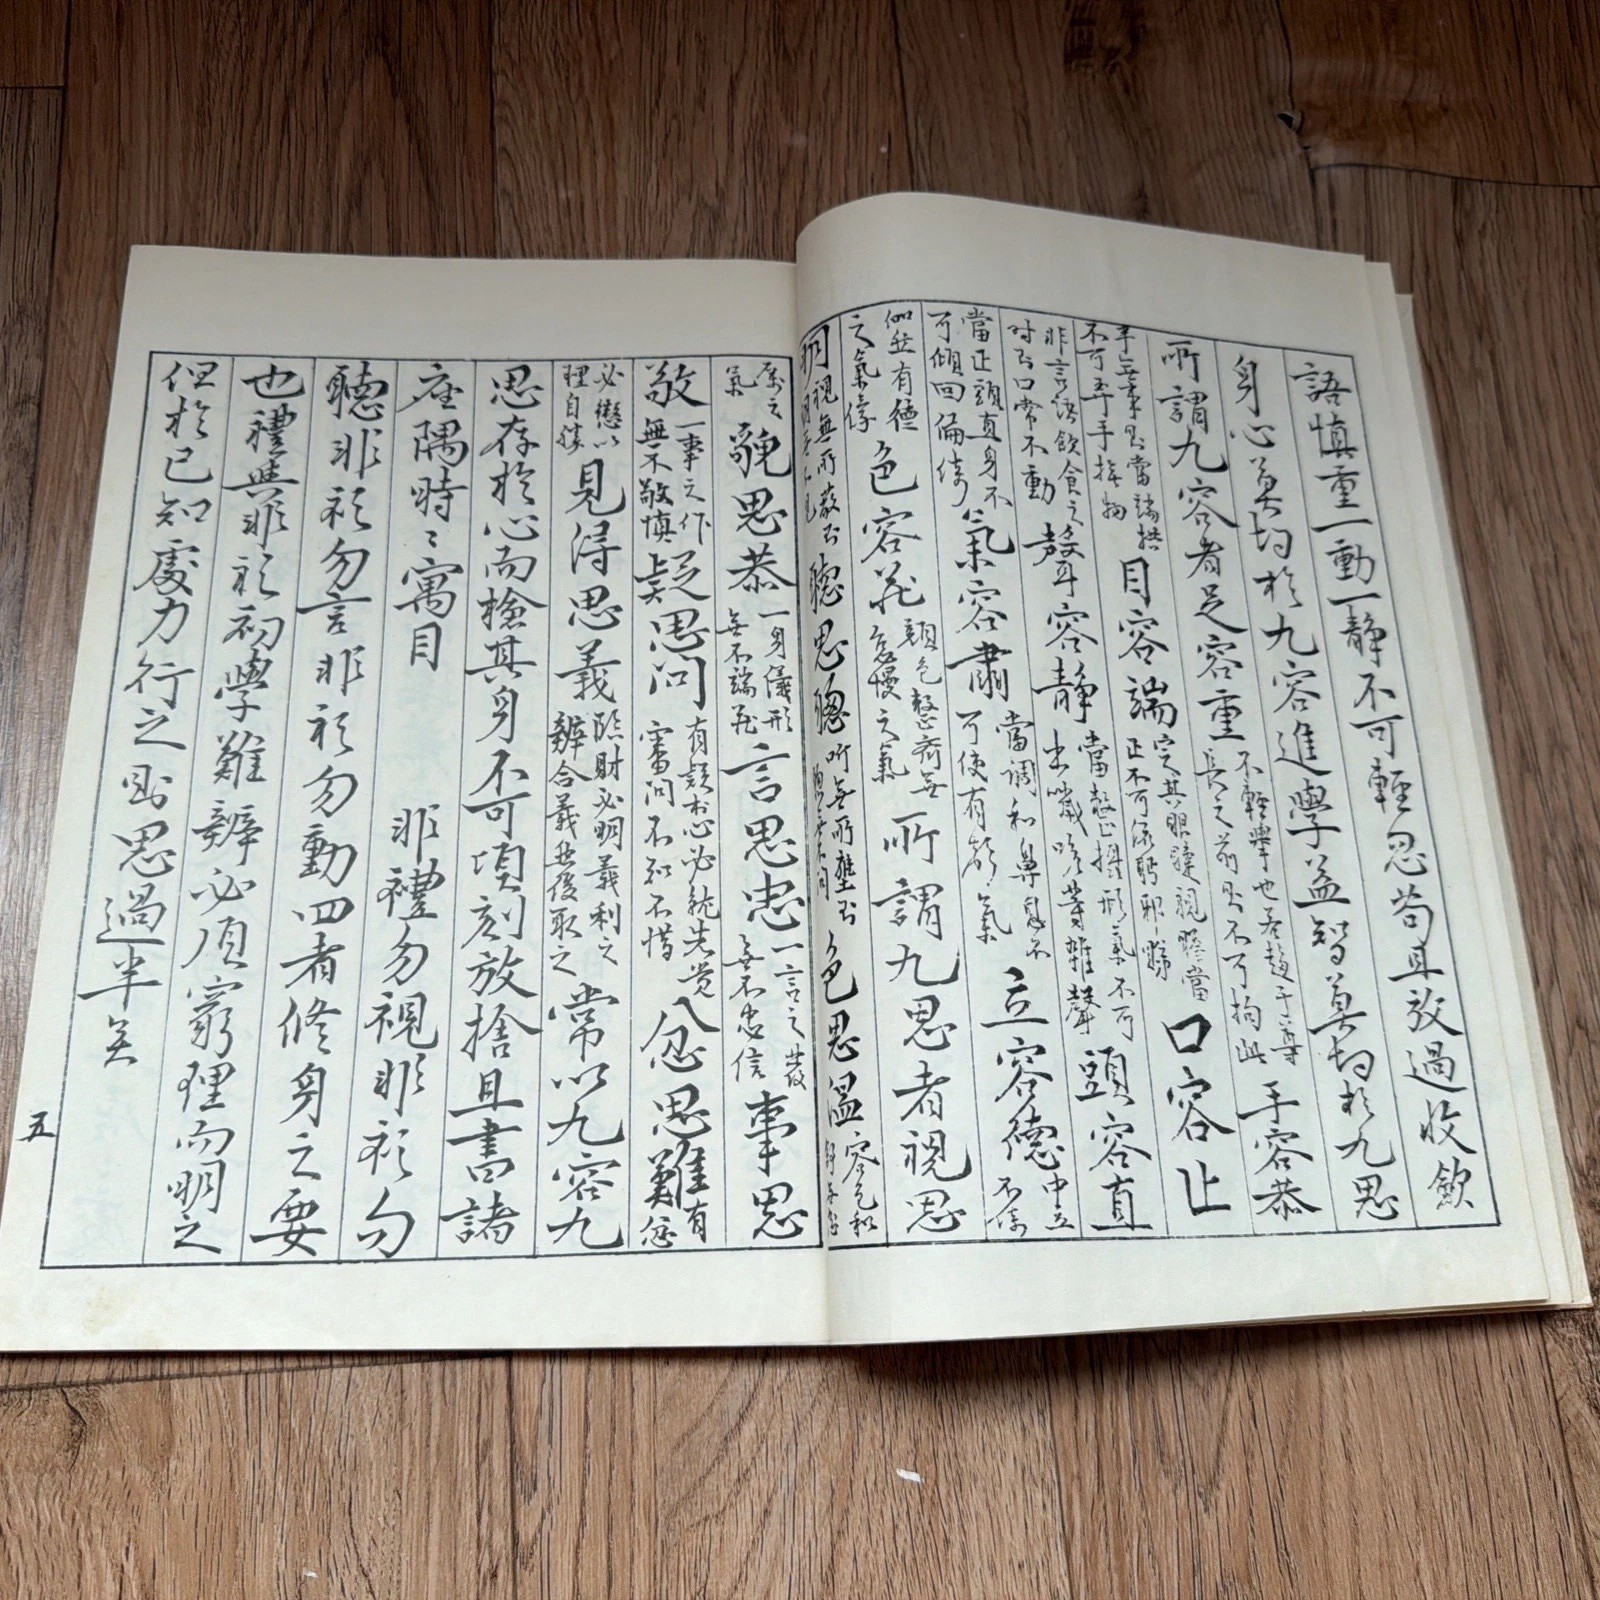 語慎重一動一靜不可輕忽苟且放過收斂
身心莫切於九容進學益智莫切於九思
所謂九容者足容重不輕擧也若趨于尊長之前則不可拘此手容恭
手無事則當端拱不可弄手物目容端定其眼睫視瞻當正不可流眄邪睇口容止
非言語飮食之時則口常不動聲容靜當整攝形氣不可出噦咳等雜聲頭容直
當正頭直身不可傾回偏倚氣容肅當調和鼻息不可使有聲氣立容德中立不倚
儼然有德之氣像色容莊顔色整齊無怠慢之氣所謂九思者視思
明視無所蔽則明無不見聽思聰聽無所壅則聰無不聞色思溫容色和舒
厲之氣貌思恭一身儀形無不端莊言思忠一言之發無不忠信事思
敬一事之作無不敬慎疑思問有疑于心必就先覺審問不知不措忿思難有忿
必懲以理自勝見得思義臨財必明義利之辨合義然後取之常以九容九
思存於心而檢其身不可頃刻放捨且書諸
座隅時〻寓目　非禮勿視非礼勿
聽非礼勿言非礼勿動四者修身之要
也禮與非礼初學難辨必須窮理而明之
但於已知處力行之則思過半矣
五